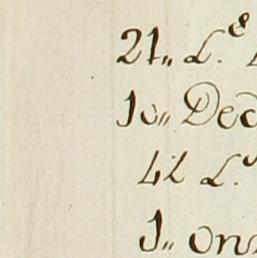 21,, L.e
10,, Dec
42 L.
1,, on